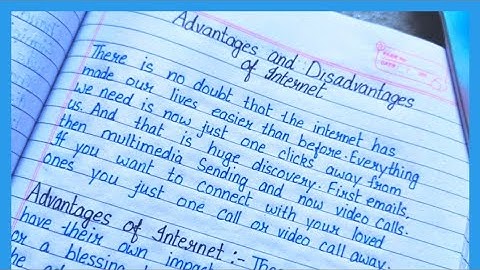 Advantages and Disadvantages
of Internet
There is no doubt that the internet has
made our lives easier than before. Everything
we need is now just one clicks away from
us. And that is huge discovery. First emails,
then multimedia Sending and now video calls.
If you want to connect with your loved
ones you just one call or video call away.
Advantages of Internet :- The
have their own impac
or a blessing